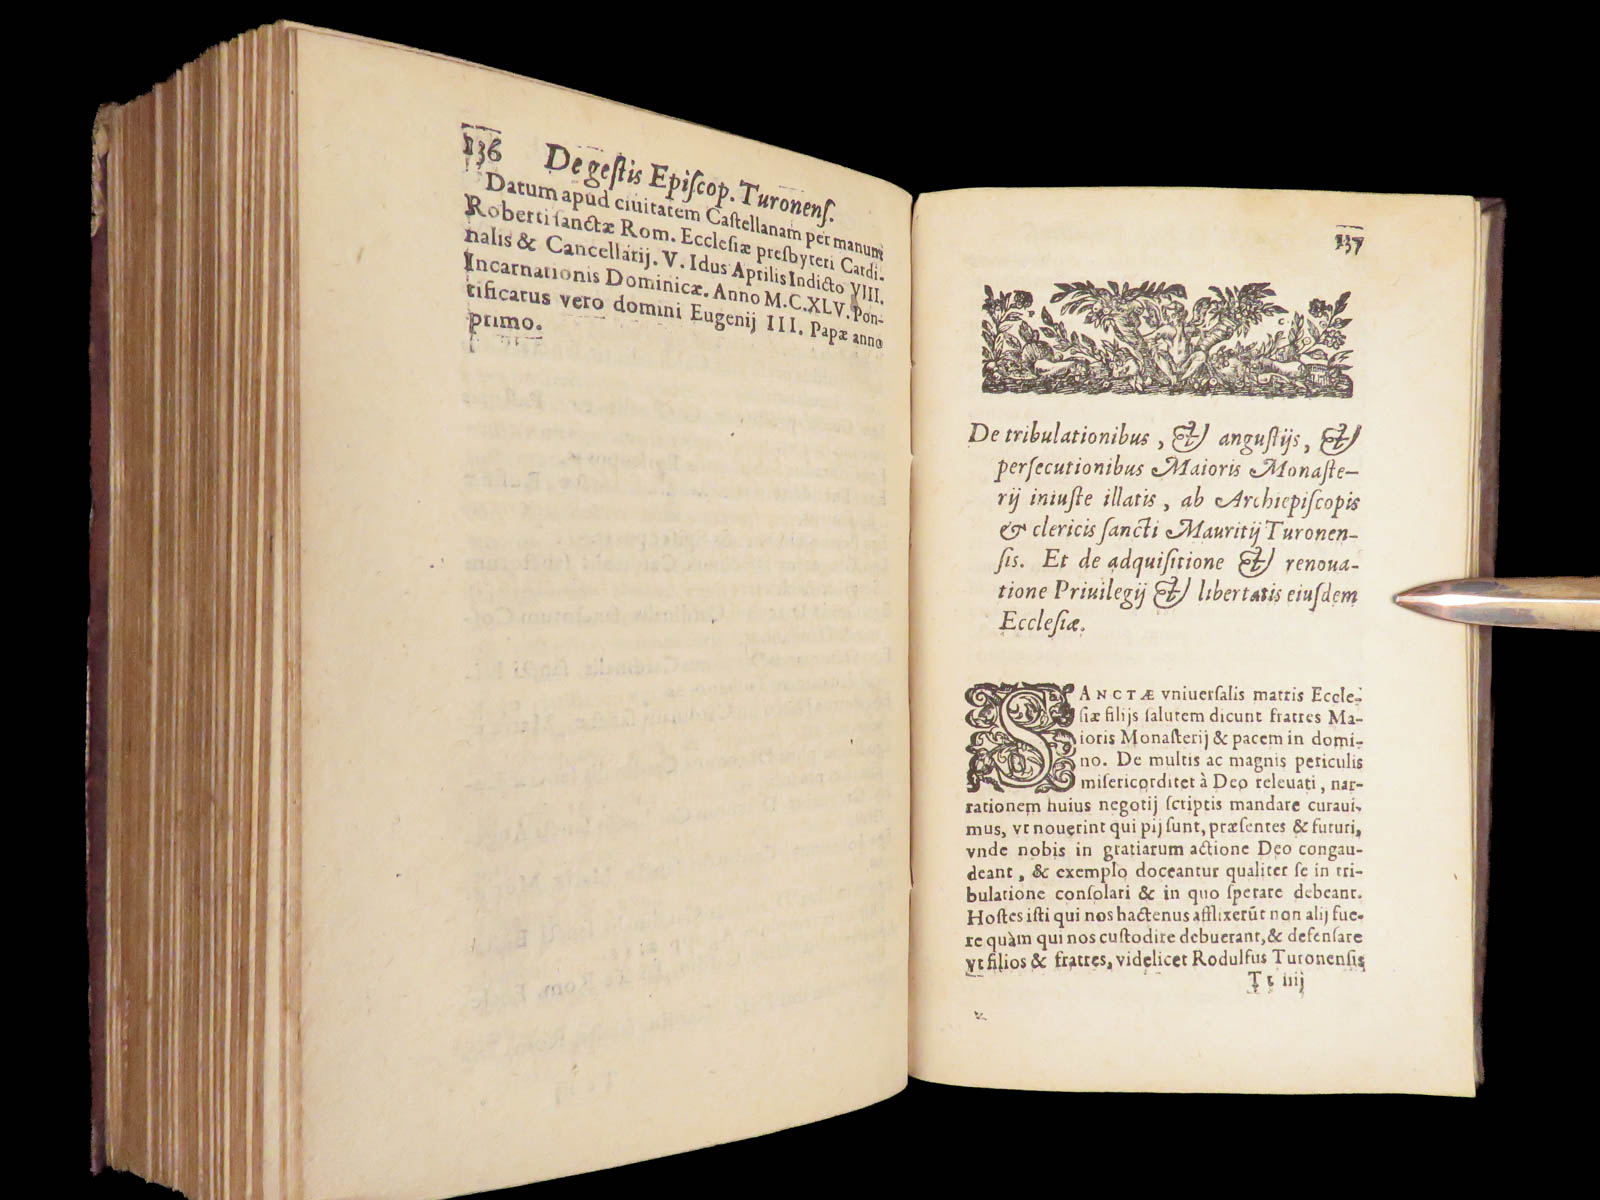 136 De geſtis Epiſcop. Turonenſ.
Datum apud ciuitatem Caſtellanam per manum
Roberti ſanctæ Rom. Eccleſiæ preſbyteri Cardi-
nalis & Cancellarij. V. Idus Aprilis Indicto VIII.
Incarnationis Dominicæ. Anno M.C.XLV. Pon-
tificatus vero domini Eugenij III. Papæ anno
primo.
137
De tribulationibus, & anguſtijs, &
perſecutionibus Maioris Monaſte-
rij iniuſte illatis, ab Archiepiſcopis
& clericis ſancti Mauritij Turonen-
ſis. Et de adquiſitione & renoua-
tione Priuilegij & libertatis eiuſdem
Eccleſiæ.
SANCTÆ vniuerſalis matris Eccle-
ſiæ filijs ſalutem dicunt fratres Ma-
ioris Monaſterij & pacem in domi-
no. De multis ac magnis periculis
miſericorditer à Deo releuati, nar-
rationem huius negotij ſcriptis mandare curaui-
mus, vt nouerint qui pij ſunt, præſentes & futuri,
vnde nobis in gratiarum actione Deo congau-
deant, & exemplo doceantur qualiter ſe in tri-
bulatione conſolari & in quo ſperare debeant.
Hoſtes iſti qui nos hactenus afflixerūt non alij fue-
re quàm qui nos cuſtodire debuerant, & defenſare
vt filios & fratres, videlicet Rodulfus Turonenſis
Tt iiij